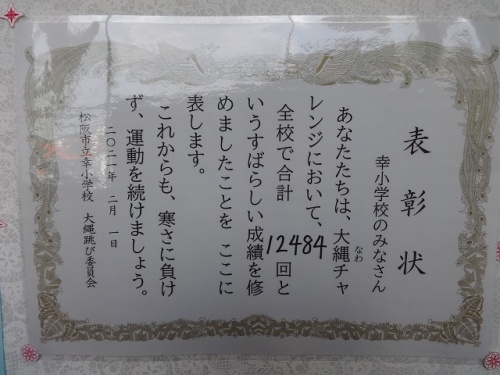 表彰状
幸小学校のみなさん
あなたたちは、大縄チャ
なわ
レンジにおいて、
全校で合計 12484 回と
いうすばらしい成績を修
めましたことを ここに
表します。
これからも、寒さに負け
ず、運動を続けましょう。
二〇二一年 二月 一日
松阪市立幸小学校 大縄跳び委員会